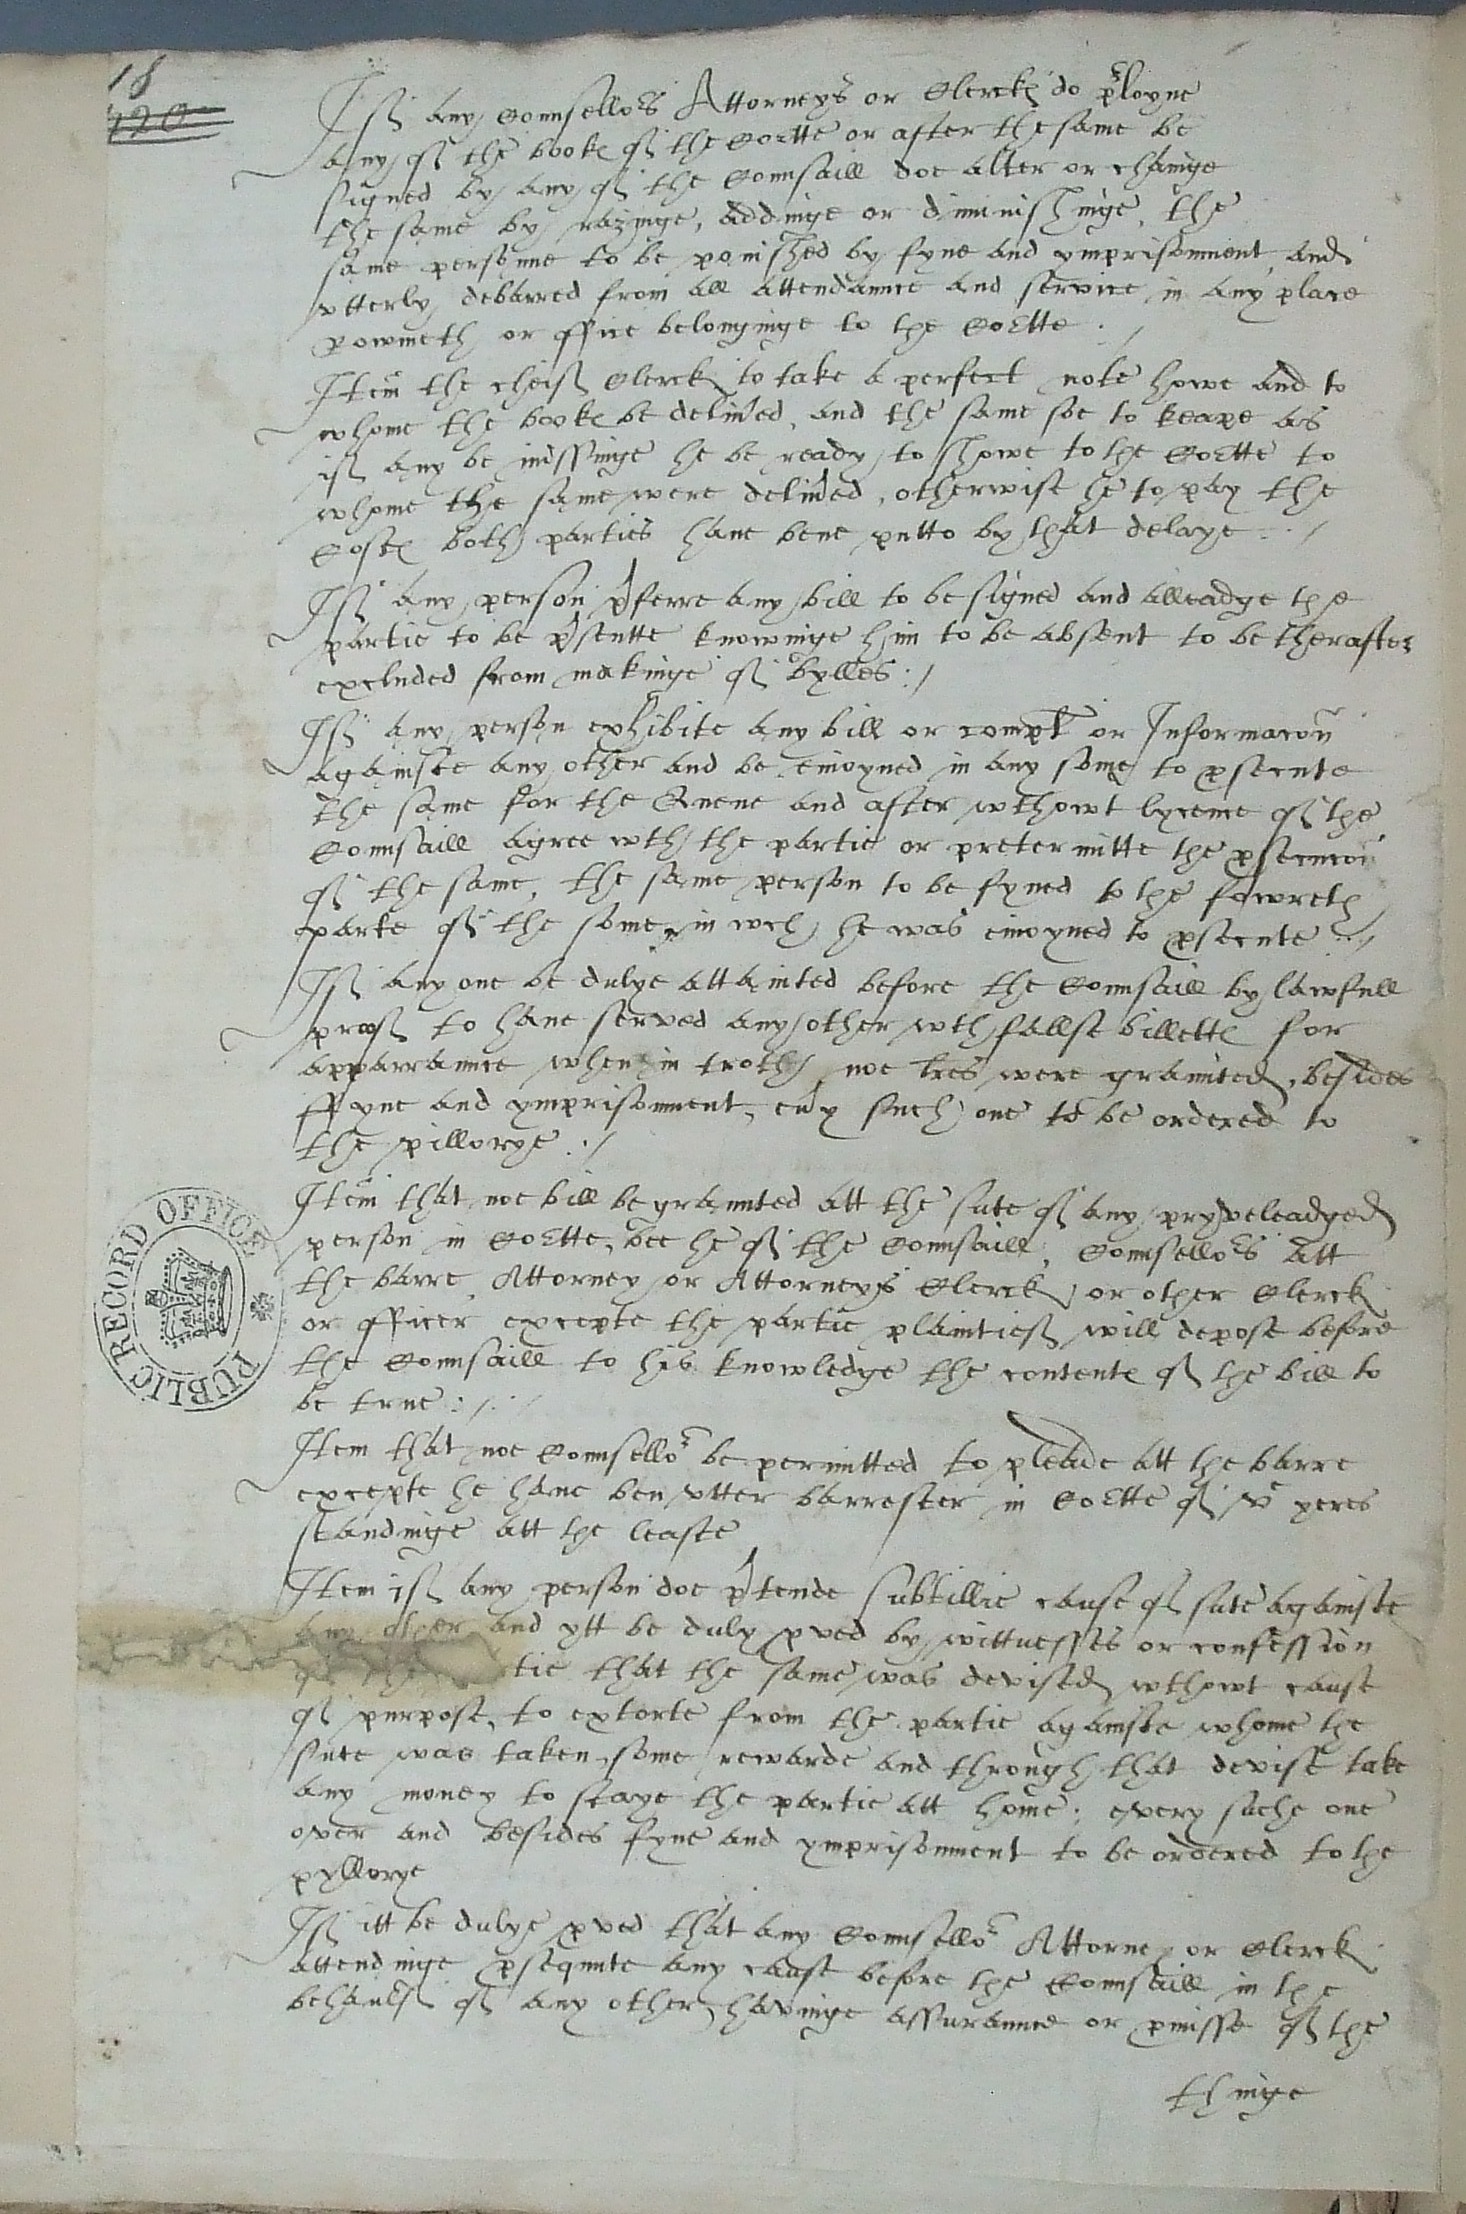 18
120
If any Counsellors Attorneys or Clerkes do purloyne
any of the bookes of the Cortte or after the same be
signed by any of the Counsaill doe alter or chainge
the same by razinge, addinge or diminishinge, the
same personne to be ponished by fyne and ymprisonment, and
vtterly debarred from all attendannce and service in any place
rowmeth or office belonginge to the Cortte ./
Item the cheif Clerke to take a perfect note howe and to
whome the bookes be delived, and the same soe to keape as
if any be missinge he be ready to showe to the Cortte to
whome the same were delived, otherwise he to pay the
Costes both parties have bene putto by that delaye ./
If any person pferre any bill to be signed and alleadge the
partie to be psentte knowinge him to be absent to be therafter
excluded from makinge of bylles :/
If any person exhibite any bill or complt or Informacon
againste any other and be enioyned in any some to psecute
the same for the Quene and after wthowt lycence of the
Counsaill agree wth the partie or pretermitte the psecucon
of the same, the same person to be fyned to the fowreth
parte of the some in wch he was enioyned to psecute ./
If any one be dulye attainted before the Counsaill by lawfull
prooff to have served any other wth fallse billettes for
apparrannce when in troth noe lres were graunted, besides
ffyne and ymprisonment, evy such one to be ordered to
the pillorye ./
Item that noe bill be graunted att the sute of any pryveleadged
person in Cortte, bee he of the Counsaill, Counsellors att
the barre, Attorney or Attorneys Clerke or other Clerke
or officer excepte the partie plaintief will depose before
the Counsaill to his knowledge the contentes of the bill to
be true :/
Item that noe Counsellor be permitted to pleade att the barre
excepte he have ben vtter barrester in Cortte of v yeres
standinge att the leaste
Item if any person doe ptende subtillie cause of sute againste
any other and ytt be duly pved by wittnesses or confession
of the tie that the same was devised wthowt cause
of purpose, to extorte from the partie againste whome the
sute was taken, some rewarde and through that devise take
any money to staye the partie att home ; every suche one
over and besides fyne and ymprisonment to be ordered to the
pyllorye
If itt be dulye pved that any Counsellor Attorney or Clerke
attendinge psequute any cause before the Counsaill in the
behaulf of any other havinge assurannce or pmisse of the
thinge
PUBLIC RECORD OFFICE